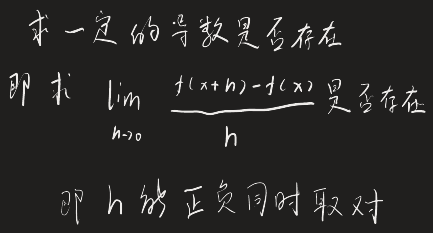 求一定的导数是否存在
即求 lim h→0 f(x+h)-f(x) / h 是否存在
即 h 能正负同时取对